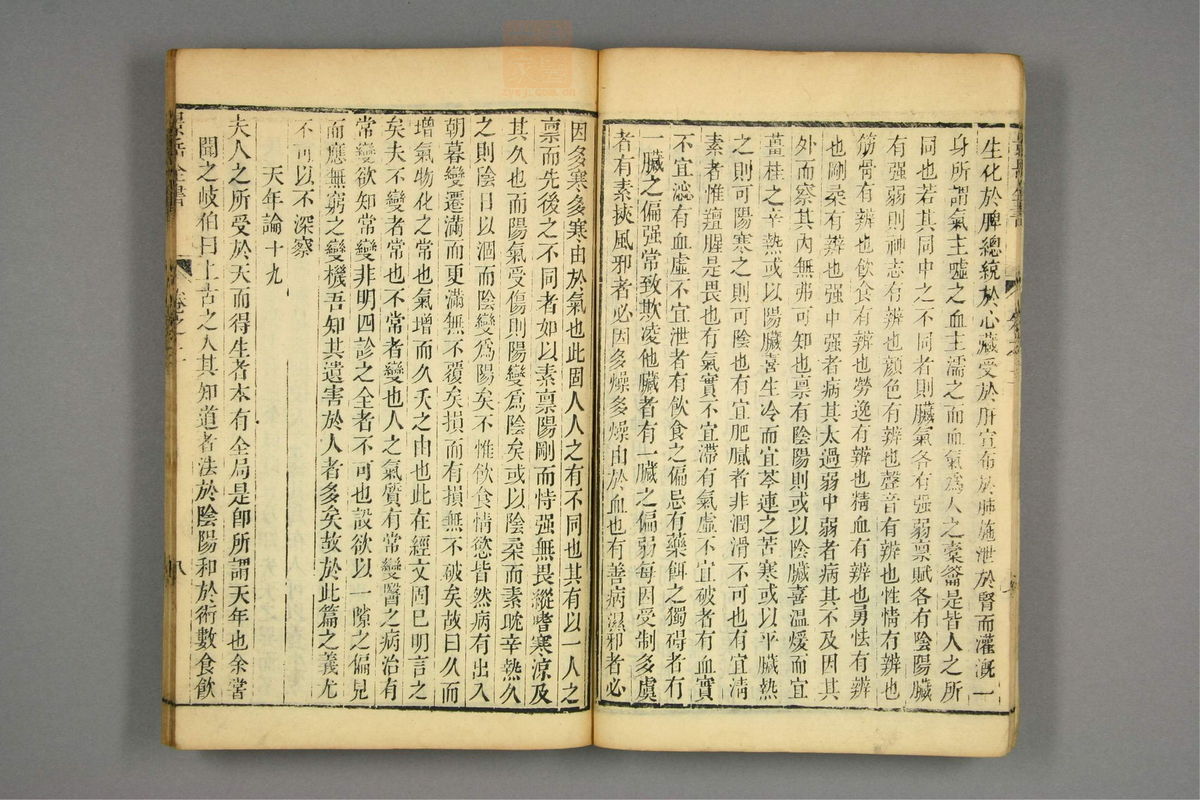 生化於脾總統於心藏受於肝宣布於肺施泄於腎而灌溉一
身所謂氣主噓之血主濡之而血氣為人之橐籥是皆人之所
同也若其同中之不同者則臟氣各有强弱禀賦各有陰陽臟
有强弱則神志有辨也顔色有辨也聲音有辨也性情有辨也
筋骨有辨也飲食有辨也勞逸有辨也精血有辨也勇怯有辨
也剛柔有辨也强中强者病其太過弱中弱者病其不及因其
外而察其內無弗可知也禀有陰陽則或以陰臟喜溫煖而宜
薑桂之辛熱或以陽臟喜生冷而宜芩連之苦寒或以平臟熱
之則可陽寒之則可陰也有宜肥膩者非潤滑不可也有宜淸
素者惟羶腥是畏也有氣實不宜滯有氣虛不宜破者有血實
不宜澁有血虛不宜泄者有飲食之偏忌有藥餌之獨碍者有
一臟之偏强常致欺凌他臟者有一臟之偏弱每因受制多虞
者有素挾風邪者必因多燥多燥由於血也有善病濕邪者必
因多寒多寒由於氣也此固人人之有不同也其有以一人之
禀而先後之不同者如以素禀陽剛而恃强無畏縱嗜寒涼及
其久也而陽氣受傷則陽變爲陰矣或以陰柔而素躭辛熱久
之則陰日以涸而陰變爲陽矣不惟飲食情慾皆然病有出入
朝暮變遷滿而更滿無不覆矣損而有損無不破矣故曰久而
增氣物化之常也氣增而久夭之由也此在經文固巳明言之
矣夫不變者常也不常者變也人之氣質有常變醫之病治有
常變欲知常變非明四診之全者不可也設欲以一隙之偏見
而應無窮之變機吾知其遺害於人者多矣故於此篇之義尤
不可以不深察
天年論十九
夫人之所受於天而得生者本有全局是卽所謂天年也余嘗
聞之岐伯曰上古之人其知道者法於陰陽和於術數食飲
景岳全書
卷之二
八